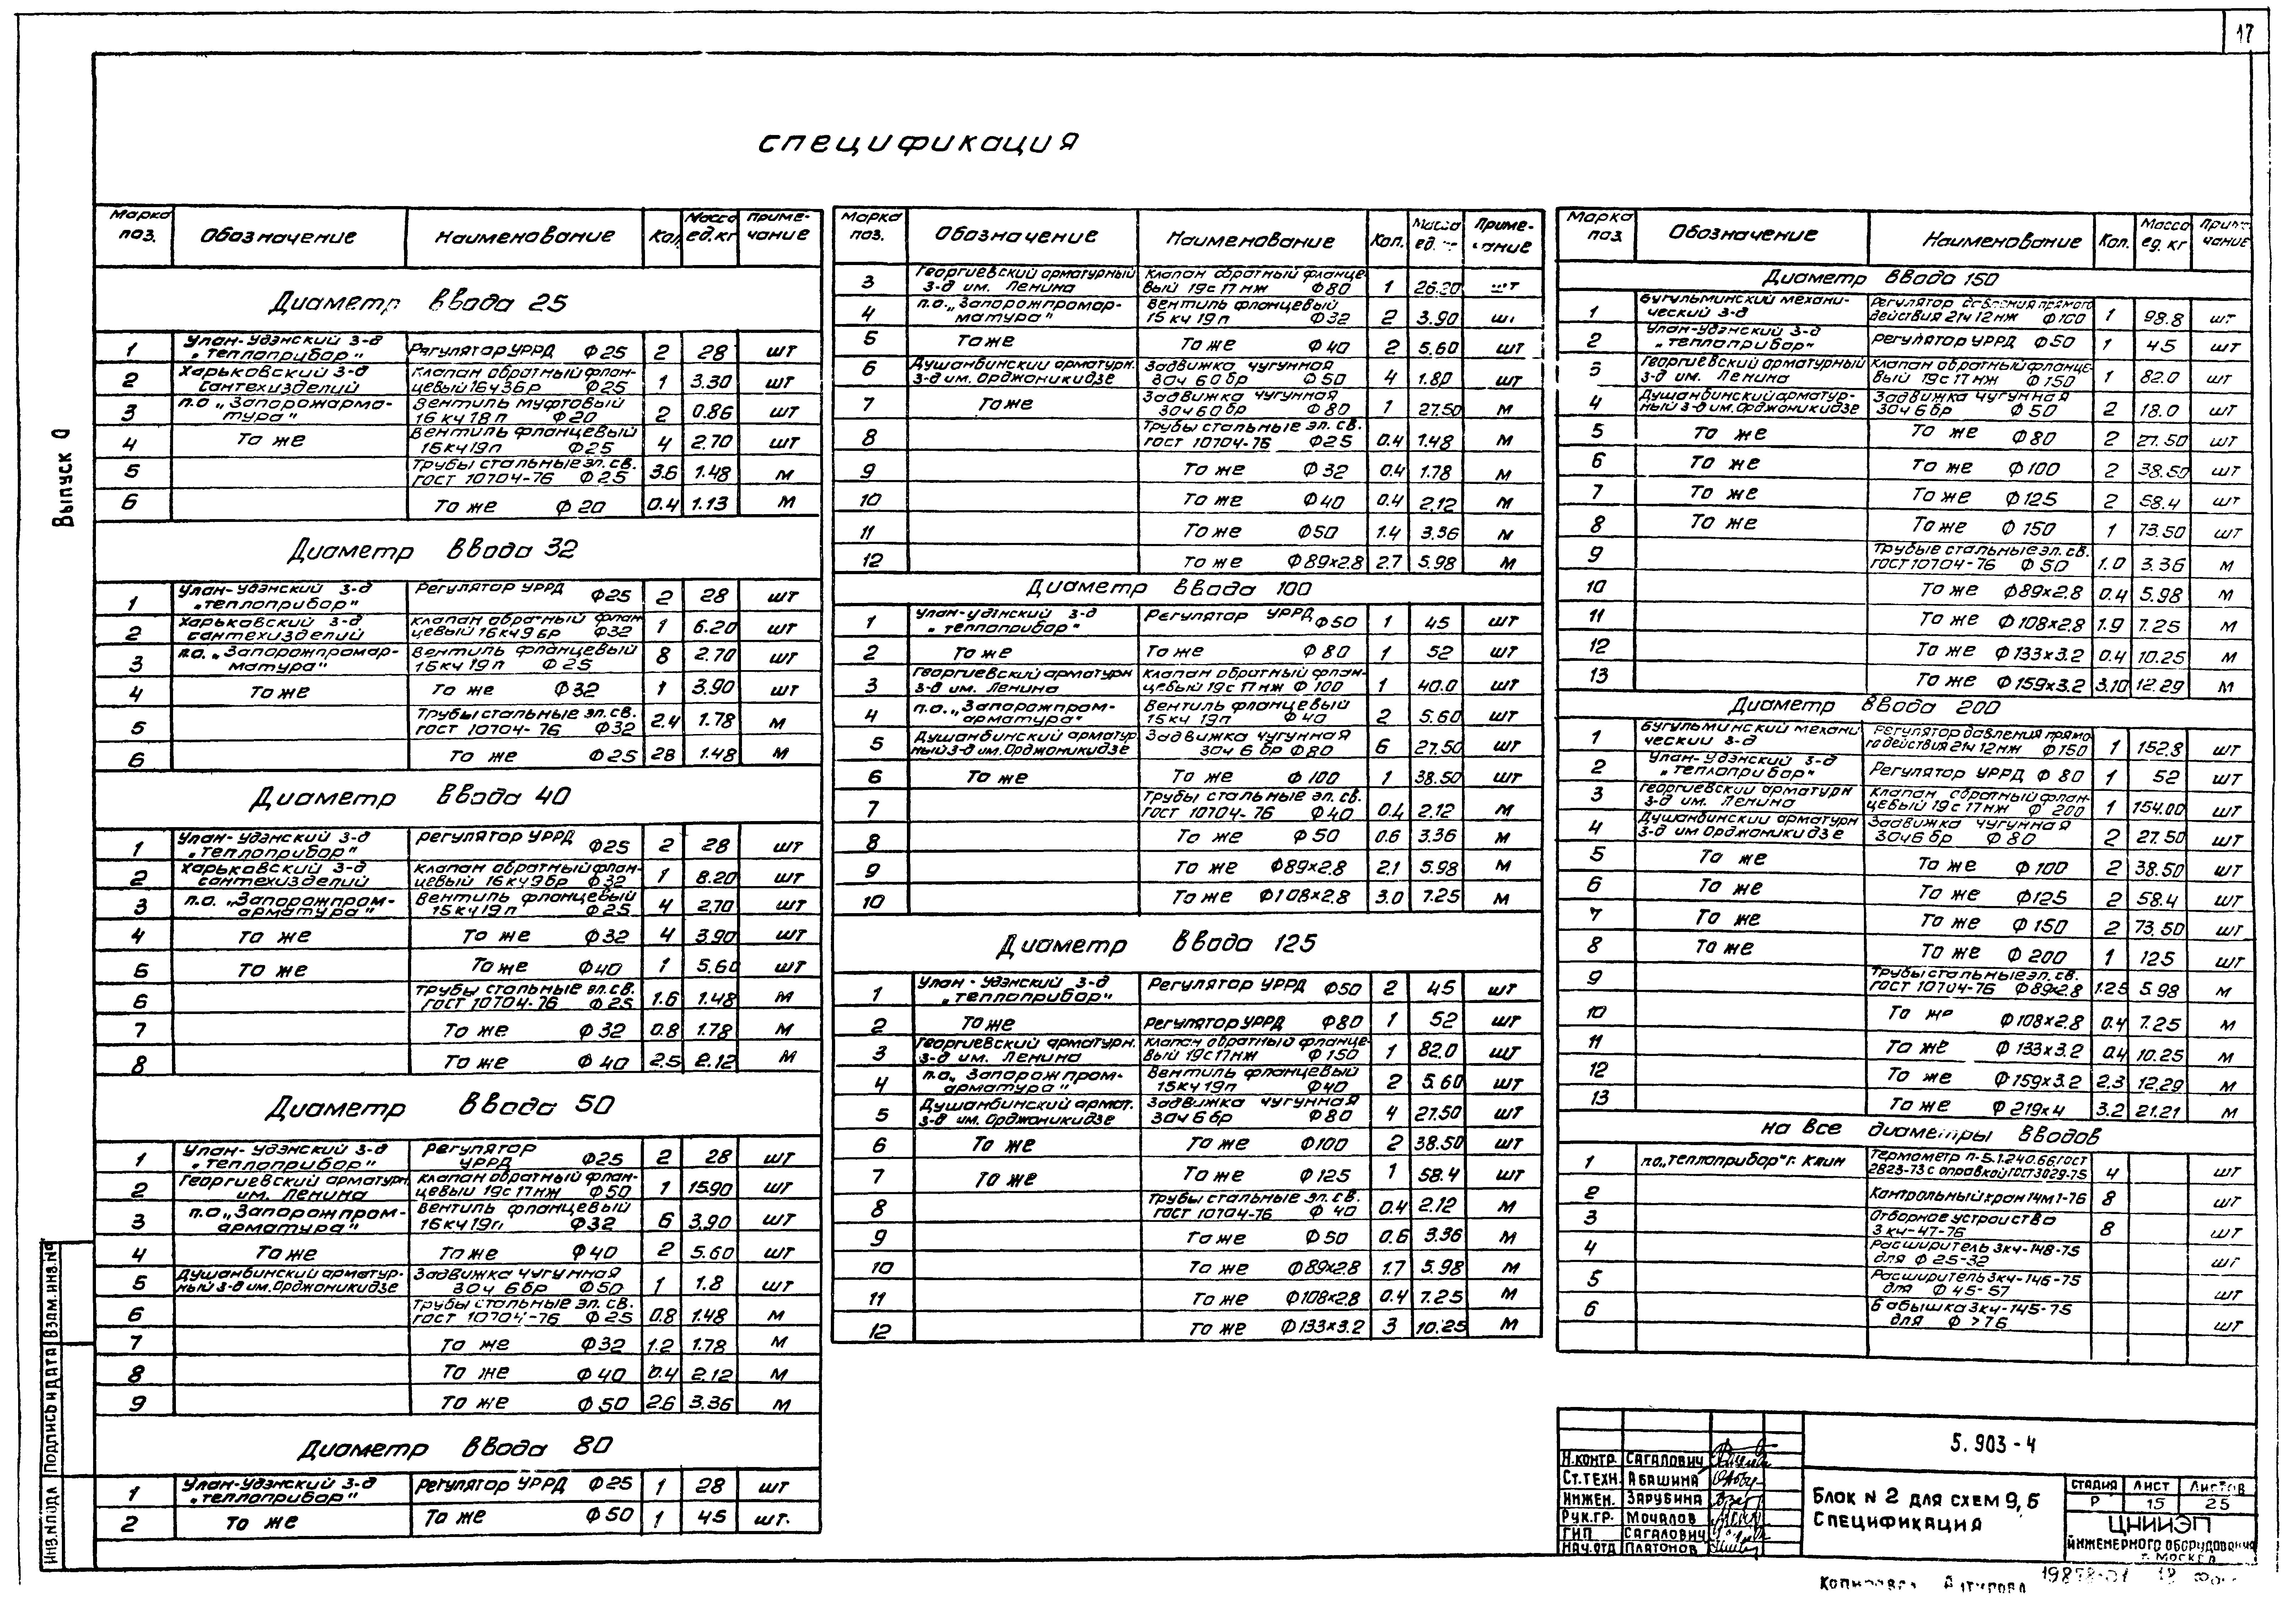 17
спецификация
Выпуск 0
Марка поз. Обозначение Наименование Кол. Масса ед.кг Примечание
Диаметр ввода 25
1 Улан-Удэнский з-д „Теплоприбор" Регулятор УРРД Ф25 2 28 шт
2 Харьковский з-д сантехизделий Клапан обратный фланцевый 16ч3бр Ф25 1 3.30 шт
3 п.о „Запорожарматура" Вентиль муфтовый 16 кч 18 п Ф20 2 0.86 шт
4 То же Вентиль фланцевый 15кч19п Ф25 4 2.70 шт
5 Трубы стальные эл. св. гост 10704-76 Ф25 3.6 1.48 м
6 То же Ф20 0.4 1.13 м
Диаметр ввода 32
1 Улан-Удэнский з-д „Теплоприбор" Регулятор УРРД Ф25 2 28 шт
2 Харьковский з-д сантехизделий Клапан обратный фланцевый 16кч9бр Ф32 1 6.20 шт
3 п.о. „Запорожпромарматура" Вентиль фланцевый 15кч 19п Ф25 8 2.70 шт
4 То же То же Ф32 1 3.90 шт
5 Трубы стальные эл. св. гост 10704-76 Ф32 2.4 1.78 м
6 То же Ф25 28 1.48 м
Диаметр ввода 40
1 Улан-Удэнский з-д „Теплоприбор" Регулятор УРРД Ф25 2 28 шт
2 Харьковский з-д сантехизделий Клапан обратный фланцевый 16кч9бр Ф32 1 8.20 шт
3 п.о. „Запорожпромарматура" Вентиль фланцевый 15кч19п Ф25 4 2.70 шт
4 То же То же Ф32 4 3.90 шт
5 То же То же Ф40 1 5.60 шт
6 Трубы стальные эл. св. гост 10704-76 Ф25 1.6 1.48 м
7 То же Ф32 0.8 1.78 м
8 То же Ф40 2.5 2.12 м
Диаметр ввода 50
1 Улан-Удэнский з-д „Теплоприбор" Регулятор УРРД Ф25 2 28 шт
2 Георгиевский арматурн им. Ленина Клапан обратный фланцевый 19с17нж Ф50 1 15.90 шт
3 п.о „Запорожпромарматура" Вентиль фланцевый 15кч19п Ф32 6 3.90 шт
4 То же То же Ф40 2 5.60 шт
5 Душанбинский арматурный з-д им. Орджоникидзе Задвижка чугунная 30ч 6бр Ф50 1 1.8 шт
6 Трубы стальные эл. св. гост 10704-76 Ф25 0.8 1.48 м
7 То же Ф32 1.2 1.78 м
8 То же Ф40 0.4 2.12 м
9 То же Ф50 2.6 3.36 м
Диаметр ввода 80
1 Улан-Удэнский з-д „Теплоприбор" Регулятор УРРД Ф25 1 28 шт
2 То же То же Ф50 1 45 шт.
Марка поз. Обозначение Наименование Кол. Масса ед. Примечание
3 Георгиевский арматурный з-д им. Ленина Клапан обратный фланцевый 19с17нж Ф80 1 26.30 шт
4 п.о. „Запорожпромарматура" Вентиль фланцевый 15 кч 19п Ф32 2 3.90 шт
5 То же То же Ф40 2 5.60 шт
6 Душанбинский арматурн. з-д им. Орджоникидзе Задвижка чугунная 30ч 6бр Ф50 4 1.80 шт
7 То же Задвижка чугунная 30ч6бр Ф80 1 27.50 м
8 Трубы стальные эл. св. гост 10704-76 Ф25 0.4 1.48 м
9 То же Ф32 0.4 1.78 м
10 То же Ф40 0.4 2.12 м
11 То же Ф50 1.4 3.36 м
12 То же Ф89х2.8 2.7 5.98 м
Диаметр ввода 100
1 Улан-Удэнский з-д „Теплоприбор" Регулятор УРРД Ф50 1 45 шт
2 То же То же Ф80 1 52 шт
3 Георгиевский арматурн з-д им. Ленина Клапан обратный фланцевый 19с17нж Ф100 1 40.0 шт
4 п.о. „Запорожпромарматура" Вентиль фланцевый 15кч 19п Ф40 2 5.60 шт
5 Душанбинский арматурный з-д им. Орджоникидзе Задвижка чугунная 30ч 6бр Ф80 6 27.50 шт
6 То же То же Ф100 1 38.50 шт
7 Трубы стальные эл. св. гост 10704-76 Ф40 0.4 2.12 м
8 То же Ф50 0.6 3.36 м
9 То же Ф89х2.8 2.1 5.98 м
10 То же Ф108х2.8 3.0 7.25 м
Диаметр ввода 125
1 Улан-Удэнский з-д „Теплоприбор" Регулятор УРРД Ф50 2 45 шт
2 То же Регулятор УРРД Ф80 1 52 шт
3 Георгиевский арматурн. з-д им. Ленина Клапан обратный фланцевый 19с17нж Ф150 1 82.0 шт
4 п.о„ Запорожпромарматура" Вентиль фланцевый 15кч19п Ф40 2 5.60 шт
5 Душанбинский армат. з-д им. Орджоникидзе Задвижка чугунная 30ч 6бр Ф80 4 27.50 шт
6 То же То же Ф100 2 38.50 шт
7 То же То же Ф125 1 58.4 шт
8 Трубы стальные эл. св. гост 10704-76 Ф40 0.4 2.12 м
9 То же Ф50 0.6 3.36 м
10 То же Ф89х2.8 1.7 5.98 м
11 То же Ф108х2.8 0.4 7.25 м
12 То же Ф133х3.2 3 10.25 м
Марка поз. Обозначение Наименование Кол. Масса ед. кг Примечание
Диаметр ввода 150
1 Бугульминский механический з-д Регулятор давления прямого действия 21ч12нж Ф100 1 98.8 шт
2 Улан-Удэнский з-д „Теплоприбор" Регулятор УРРД Ф50 1 45 шт
3 Георгиевский арматурный з-д им. Ленина Клапан обратный фланцевый 19с17нж Ф150 1 82.0 шт
4 Душанбинский арматурный з-д им. Орджоникидзе Задвижка чугунная 30ч 6бр Ф50 2 18.0 шт
5 То же То же Ф80 2 27.50 шт
6 То же То же Ф100 2 38.50 шт
7 То же То же Ф125 2 58.4 шт
8 То же То же Ф150 1 73.50 шт
9 Трубые стальные эл. св. гост 10704-76 Ф50 1.0 3.36 м
10 То же Ф89х2.8 0.4 5.98 м
11 То же Ф108х2.8 1.9 7.25 м
12 То же Ф133х3.2 0.4 10.25 м
13 То же Ф159х3.2 3.10 12.29 м
Диаметр ввода 200
1 Бугульминский механический з-д Регулятор давления прямого действия 21ч12нж Ф150 1 152.8 шт
2 Улан-Удэнский з-д „Теплоприбор" Регулятор УРРД Ф80 1 52 шт
3 Георгиевский арматурн з-д им. Ленина Клапан обратный фланцевый 19с17нж Ф200 1 154.00 шт
4 Душанбинский арматурн з-д им Орджоникидзе Задвижка чугунная 30ч6бр Ф80 2 27.50 шт
5 То же То же Ф100 2 38.50 шт
6 То же То же Ф125 2 58.4 шт
7 То же То же Ф150 2 73.50 шт
8 То же То же Ф200 1 125 шт
9 Трубы стальные эл. св. гост 10704-76 Ф89х2.8 1.25 5.98 м
10 То же Ф108х2.8 0.4 7.25 м
11 То же Ф133х3.2 0.4 10.25 м
12 То же Ф159х3.2 2.3 12.29 м
13 То же Ф219х4 3.2 21.21 м
На все диаметры вводов
1 п.о„Теплоприбор" г. Клин Термометр П-5.1.240.66.гост 2823-73 с оправкой гост 3029-75 4 шт
2 Контрольный кран 14М1-16 8 шт
3 Отборное устройство 3кч-47-76 8 шт
4 Расширитель 3кч-148-75 для Ф25-32 шт
5 Расширитель 3кч-146-75 для Ф45-57 шт
6 Бобышка 3кч-145-75 для Ф>76 шт
5.903-4
Н.контр. Сагалович
Ст.техн. Абашина
Инжен. Зарубина
Рук.гр. Мочалов
ГИП Сагалович
Нач.отд Платонов
Блок N 2 для схем 9,б
Спецификация
стадия лист листов
Р 15 25
ЦНИИЭП
инженерного оборудования
г. Москва
Инв.N подл Подпись и дата Взам.инв.N°
Копировал